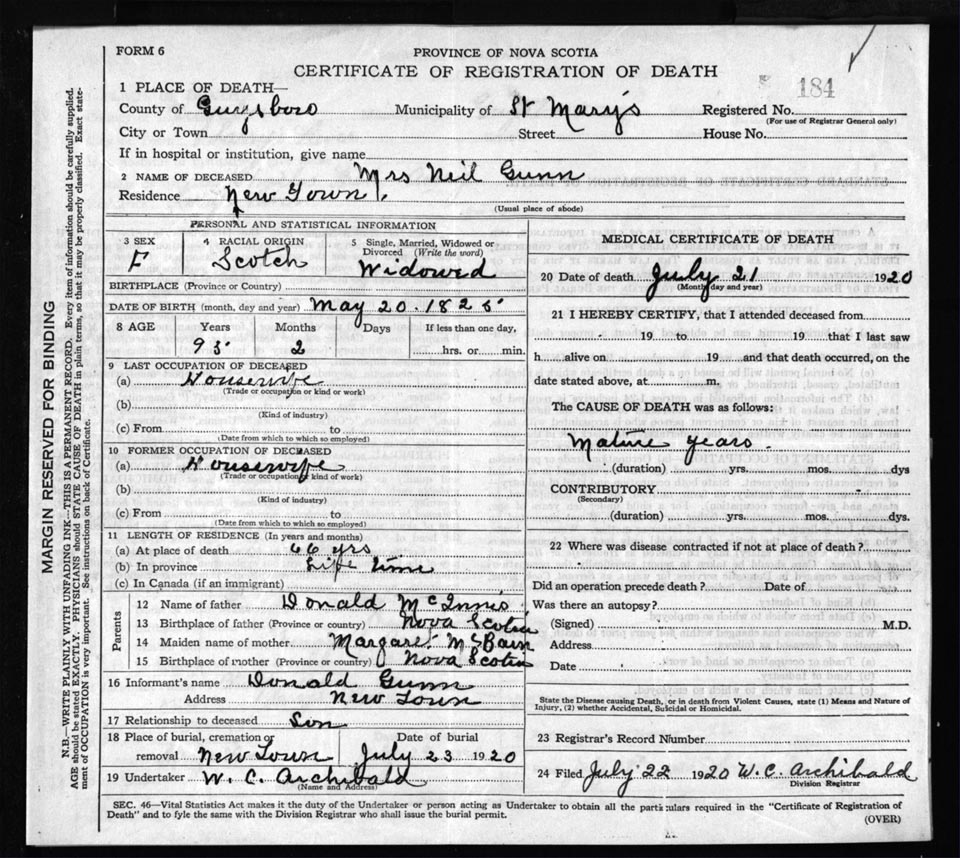 FORM 6
PROVINCE OF NOVA SCOTIA
CERTIFICATE OF REGISTRATION OF DEATH
184
1 PLACE OF DEATH—
County of Guysboro Municipality of St Mary's Registered No.
(For use of Registrar General only)
City or Town Street House No.
If in hospital or institution, give name
2 NAME OF DECEASED Mrs Neil Gunn
Residence New Town.
(Usual place of abode)
PERSONAL AND STATISTICAL INFORMATION
3 SEX 4 RACIAL ORIGIN 5 Single, Married, Widowed or
Divorced (Write the word)
F Scotch Widowed
BIRTHPLACE (Province or Country)
DATE OF BIRTH (month, day and year) May 20. 1825
8 AGE Years Months Days If less than one day,
95 2 hrs. or min.
9 LAST OCCUPATION OF DECEASED
(a) Housewife
(Trade or occupation or kind or work)
(b)
(Kind of industry)
(c) From to
(Date from which to which so employed)
10 FORMER OCCUPATION OF DECEASED
(a) Housewife
(Trade or occupation or kind of work)
(b)
(Kind of industry)
(c) From to
(Date from which to which so employed)
11 LENGTH OF RESIDENCE (In years and months)
(a) At place of death 66 yrs
(b) In province Life time
(c) In Canada (if an immigrant)
Parents
12 Name of father Donald McInnis
13 Birthplace of father (Province or country) Nova Scotia
14 Maiden name of mother Margaret McBain
15 Birthplace of mother (Province or country) Nova Scotia
16 Informant's name Donald Gunn
Address New Town
17 Relationship to deceased Son
18 Place of burial, cremation or Date of burial
removal New Town July 23 1920
19 Undertaker W. C. Archibald
(Name and Address)
MEDICAL CERTIFICATE OF DEATH
20 Date of death July 21 1920
(Month day and year)
21 I HEREBY CERTIFY, that I attended deceased from
19 to 19 that I last saw
h alive on 19 and that death occurred, on the
date stated above, at m.
The CAUSE OF DEATH was as follows:
Mature years
(duration) yrs. mos. dys
CONTRIBUTORY
(Secondary)
(duration) yrs. mos. dys.
22 Where was disease contracted if not at place of death?
Did an operation precede death? Date of
Was there an autopsy?
(Signed) M.D.
Address
Date
State the Disease causing Death, or in death from Violent Causes, state (1) Means and Nature of
Injury, (2) whether Accidental, Suicidal or Homicidal.
23 Registrar's Record Number
24 Filed July 22 1920 W. C. Archibald
Division Registrar
SEC. 46—Vital Statistics Act makes it the duty of the Undertaker or person acting as Undertaker to obtain all the particulars required in the "Certificate of Registration of
Death" and to fyle the same with the Division Registrar who shall issue the burial permit.
(OVER)
MARGIN RESERVED FOR BINDING
N.B.—WRITE PLAINLY WITH UNFADING INK—THIS IS A PERMANENT RECORD. Every item of information should be carefully supplied.
AGE should be stated EXACTLY. PHYSICIANS should STATE CAUSE OF DEATH in plain terms, so that it may be properly classified. Exact state-
ment of OCCUPATION is very important. See instructions on back of Certificate.